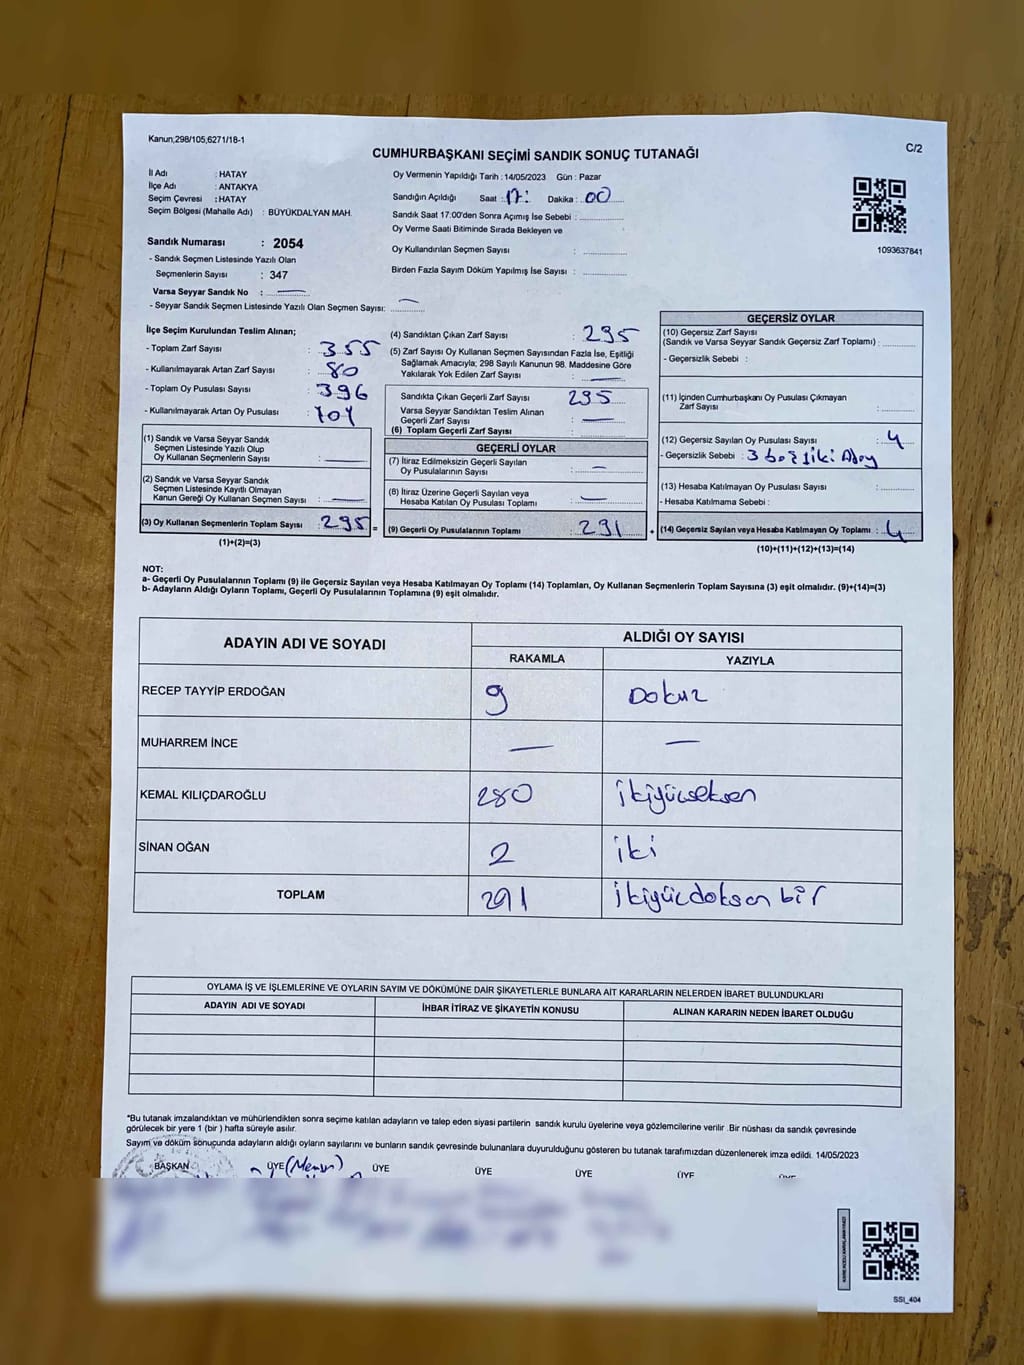 Kanun;298/105,6271/18-1
C/2
CUMHURBAŞKANI SEÇİMİ SANDIK SONUÇ TUTANAĞI
İl Adı : HATAY
İlçe Adı : ANTAKYA
Seçim Çevresi : HATAY
Seçim Bölgesi (Mahalle Adı) : BÜYÜKDALYAN MAH.
Sandık Numarası : 2054
- Sandık Seçmen Listesinde Yazılı Olan
Seçmenlerin Sayısı : 347
Varsa Seyyar Sandık No : —
- Seyyar Sandık Seçmen Listesinde Yazılı Olan Seçmen Sayısı: —
Oy Vermenin Yapıldığı Tarih : 14/05/2023 Gün : Pazar
Sandığın Açıldığı Saat : 17: Dakika : 00
Sandık Saat 17:00'den Sonra Açımış İse Sebebi :
Oy Verme Saati Bitiminde Sırada Bekleyen ve
Oy Kullandırılan Seçmen Sayısı :
Birden Fazla Sayım Döküm Yapılmış İse Sayısı :
1093637841
İlçe Seçim Kurulundan Teslim Alınan;
- Toplam Zarf Sayısı : 355
- Kullanılmayarak Artan Zarf Sayısı : 80
- Toplam Oy Pusulası Sayısı : 396
- Kullanılmayarak Artan Oy Pusulası : 101
(1) Sandık ve Varsa Seyyar Sandık
Seçmen Listesinde Yazılı Olup
Oy Kullanan Seçmenlerin Sayısı : —
(2) Sandık ve Varsa Seyyar Sandık
Seçmen Listesinde Kayıtlı Olmayan
Kanun Gereği Oy Kullanan Seçmen Sayısı : —
(3) Oy Kullanan Seçmenlerin Toplam Sayısı : 295 =
(1)+(2)=(3)
(4) Sandıktan Çıkan Zarf Sayısı : 295
(5) Zarf Sayısı Oy Kullanan Seçmen Sayısından Fazla İse, Eşitliği
Sağlamak Amacıyla; 298 Sayılı Kanunun 98. Maddesine Göre
Yakılarak Yok Edilen Zarf Sayısı : —
Sandıkta Çıkan Geçerli Zarf Sayısı 295
Varsa Seyyar Sandıktan Teslim Alınan
Geçerli Zarf Sayısı : —
(6) Toplam Geçerli Zarf Sayısı :
GEÇERLİ OYLAR
(7) İtiraz Edilmeksizin Geçerli Sayılan
Oy Pusulalarının Sayısı : —
(8) İtiraz Üzerine Geçerli Sayılan veya
Hesaba Katılan Oy Pusulası Toplamı : —
(9) Geçerli Oy Pusulalarının Toplamı : 291 +
GEÇERSİZ OYLAR
(10) Geçersiz Zarf Sayısı
(Sandık ve Varsa Seyyar Sandık Geçersiz Zarf Toplamı) :
- Geçersizlik Sebebi :
(11) İçinden Cumhurbaşkanı Oy Pusulası Çıkmayan
Zarf Sayısı :
(12) Geçersiz Sayılan Oy Pusulası Sayısı : 4
- Geçersizlik Sebebi : 3 boş
(13) Hesaba Katılmayan Oy Pusulası Sayısı :
- Hesaba Katılmama Sebebi :
(14) Geçersiz Sayılan veya Hesaba Katılmayan Oy Toplamı : 4
(10)+(11)+(12)+(13)=(14)
NOT:
a- Geçerli Oy Pusulalarının Toplamı (9) ile Geçersiz Sayılan veya Hesaba Katılmayan Oy Toplamı (14) Toplamları, Oy Kullanan Seçmenlerin Toplam Sayısına (3) eşit olmalıdır. (9)+(14)=(3)
b- Adayların Aldığı Oyların Toplamı, Geçerli Oy Pusulalarının Toplamına (9) eşit olmalıdır.
ADAYIN ADI VE SOYADI ALDIĞI OY SAYISI
RAKAMLA YAZIYLA
RECEP TAYYİP ERDOĞAN 9 Dokuz
MUHARREM İNCE — —
KEMAL KILIÇDAROĞLU 280 ikiyüzseksen
SİNAN OĞAN 2 iki
TOPLAM 291 ikiyüzdoksan bir
OYLAMA İŞ VE İŞLEMLERİNE VE OYLARIN SAYIM VE DÖKÜMÜNE DAİR ŞİKAYETLERLE BUNLARA AİT KARARLARIN NELERDEN İBARET BULUNDUKLARI
ADAYIN ADI VE SOYADI İHBAR İTİRAZ VE ŞİKAYETİN KONUSU ALINAN KARARIN NEDEN İBARET OLDUĞU
*Bu tutanak imzalandıktan ve mühürlendikten sonra seçime katılan adayların ve talep eden siyasi partilerin sandık kurulu üyelerine veya gözlemcilerine verilir .Bir nüshası da sandık çevresinde
görülecek bir yere 1 (bir ) hafta süreyle asılır.
Sayım ve döküm sonuçunda adayların aldığı oyların sayılarını ve bunların sandık çevresinde bulunanlara duyurulduğunu gösteren bu tutanak tarafımızdan düzenlenerek imza edildi. 14/05/2023
BAŞKAN ÜYE (Memur) ÜYE ÜYE ÜYE ÜYE ÜYE
SSI_404